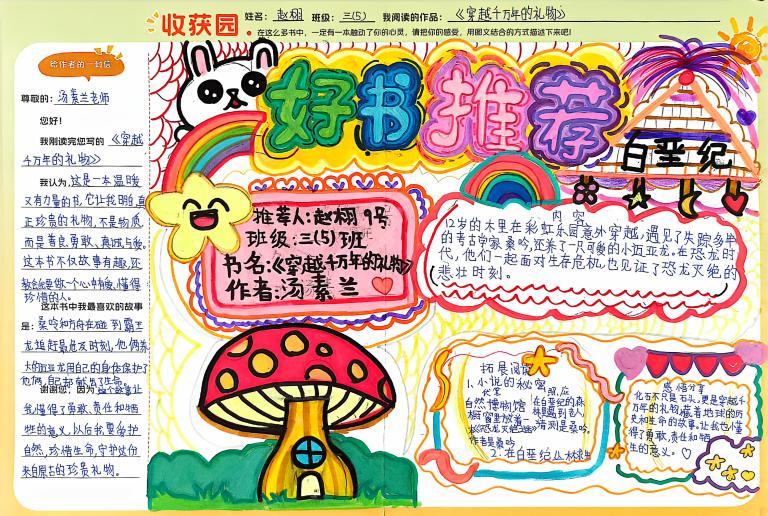 收获园
姓名：赵栩 班级：三(5) 我阅读的作品：《穿越千万年的礼物》
在这么多书中，一定有一本触动了你的心灵，请把你的感受，用图文结合的方式描述下来吧！
给作者的一封信
尊敬的：汤素兰老师
您好！
我刚读完您写的《穿越
千万年的礼物》
我认为，这是一本温暖
又有力量的书，它让我明白，真
正珍贵的礼物，不是物质，
而是善良、勇敢、真诚与爱。
这本书不仅故事有趣，还
教会我要做一个心中有爱、懂得
珍惜的人。
这本书中我最喜欢的故事
是：桑吟和
龙追赶最危及时刻，他俩养
大的
自己
谢谢您，因为这个故事让
我懂得了勇敢、责任和牺
牲的意义，以后我要爱护
自然，珍惜生命，守护这份
来自原古的珍贵礼物。
好书推荐
白垩纪
推荐人：赵栩 9号
班级：三(5)班
书名：《穿越千万年的礼物》
作者：汤素兰
内容
12岁的木里在彩虹乐园意外穿越，遇见了失踪多年
的考古学家桑吟，还养了一只可爱的小近亚龙。在恐龙时
代，他们一起面对生存危机，也见证了恐龙灭绝的
悲壮时刻。
拓展阅读
1.小说的秘密
自然博物馆
橱窗里放着一
作者是桑吟
照应
在白垩纪的森
林里遇到老人
猜测是桑吟。
2.在白垩纪丛林求生
感悟分享
化石不只是石头，更是穿越千
万年的礼物，藏着地球的历
史和生命的故事。让我也懂
得了勇敢、责任和牺
牲的意义。